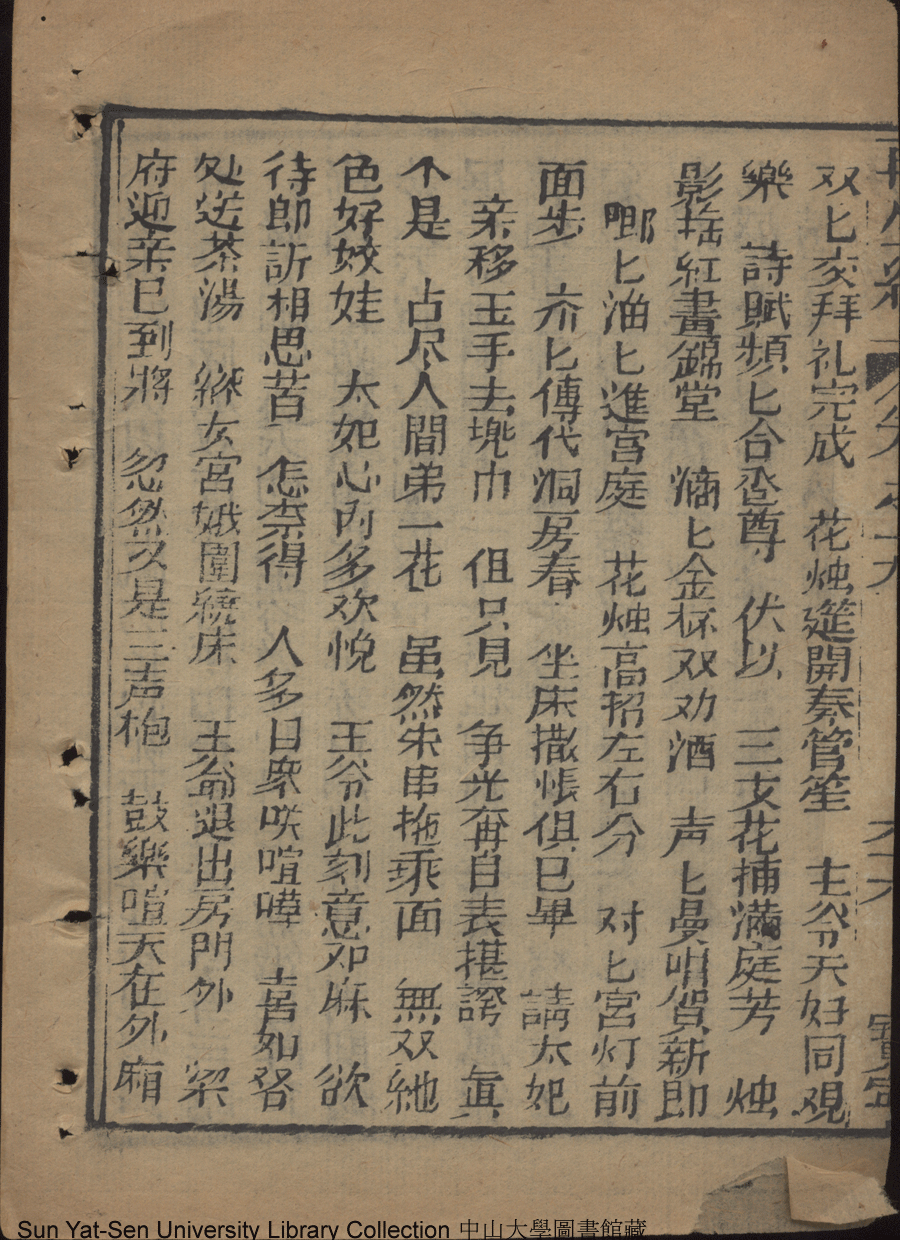 双匕交拜礼完成　花烛筵開奏管笙　王爷天妃同观
樂　詩賦頻匕合卺尊　伏以　三支花捕滿庭芳　烛
影摇紅畫錦堂　滴匕金杯双劝酒　声匕曼唱贺新郎
啷匕油匕進宫庭　花烛高招左右分　对匕宮灯前
面步　齐匕傳代洞房春　坐床撒帳俱已畢　請太妃
亲移玉手去兠巾　但只見　争光奋自表堪誇　真
不是　占尽人間弟一花　虽然朱串拖乘面　無双絶
色好姣娃　太妃心内多欢悅　王爷此刻意邓麻　欲
待郎訴相思苦　怎柰得　人多日衆咲喧嘩　喜如客
处送茶湯　綵女宮娥圍繞床　王爺退出房門外　梁
府迎亲已到將　忽然又是三声炮　鼓樂喧天在外廂
Sun Yat-Sen University Library Collection 中山大學圖書館藏